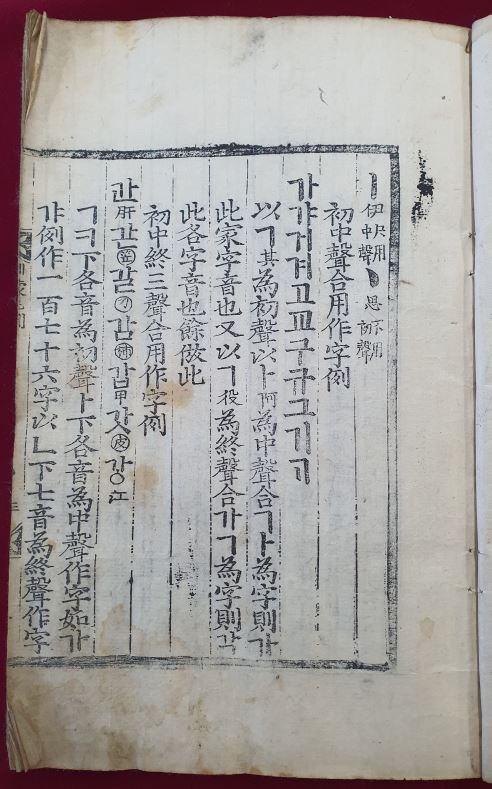 ㅣ伊只用中聲ㆍ思不用初聲
初中聲合用作字例
가갸거겨고교구규그기ᄀᆞ
以ㄱ其為初聲以ㅏ阿為中聲合ㄱㅏ為字則가
此家字音也又以ㄱ役為終聲合가ㄱ為字則각
此各字音也餘倣此
初中終三聲合用作字例
간肝갇笠갈刀감柿갑甲갓皮강江
ㄱㅋ下各音為初聲ㅏ下各音為中聲作字如가
갸例作一百七十六字以ㄴ下七音為終聲作字